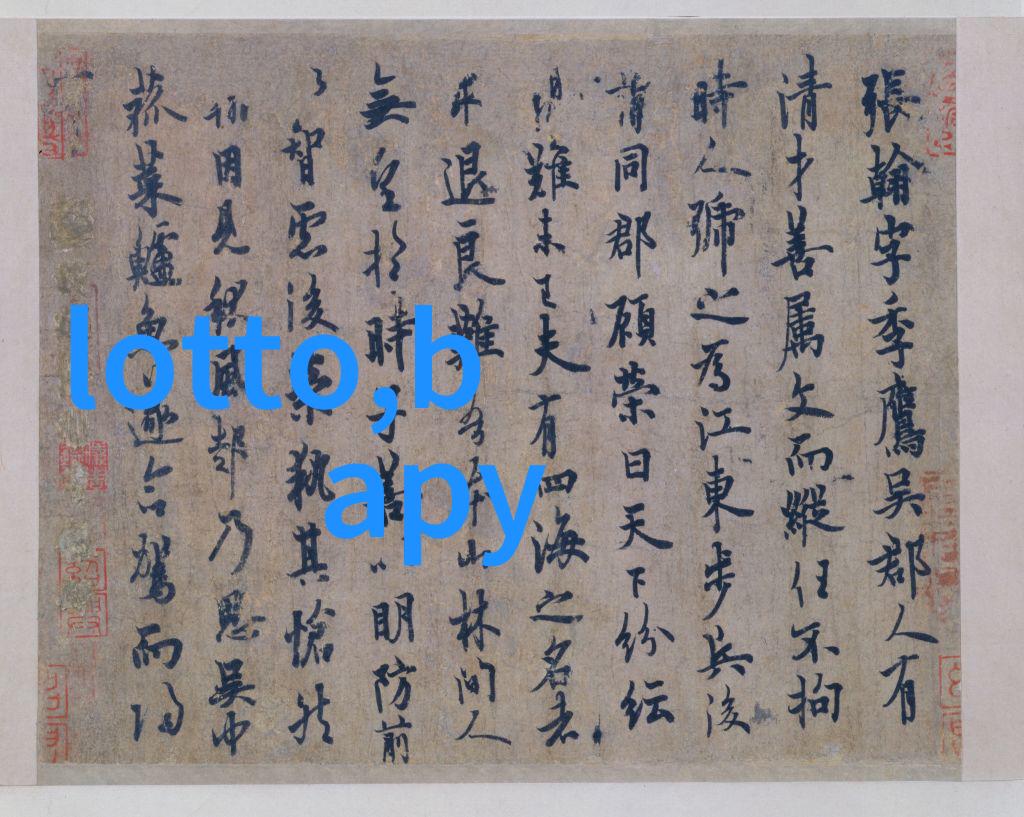 張翰字季鷹吳郡人有
清才善属文而縱任不拘
時人號之為江東步兵後
同郡顧榮曰天下紛紜
難未已夫有四海之名者
求退良難吾本山林間人
無望於時子善以明防前
以智慮後榮執其愴然
因見秋風起乃思吳中
菰菜鱸魚遂命駕而歸
lotto,b
apy